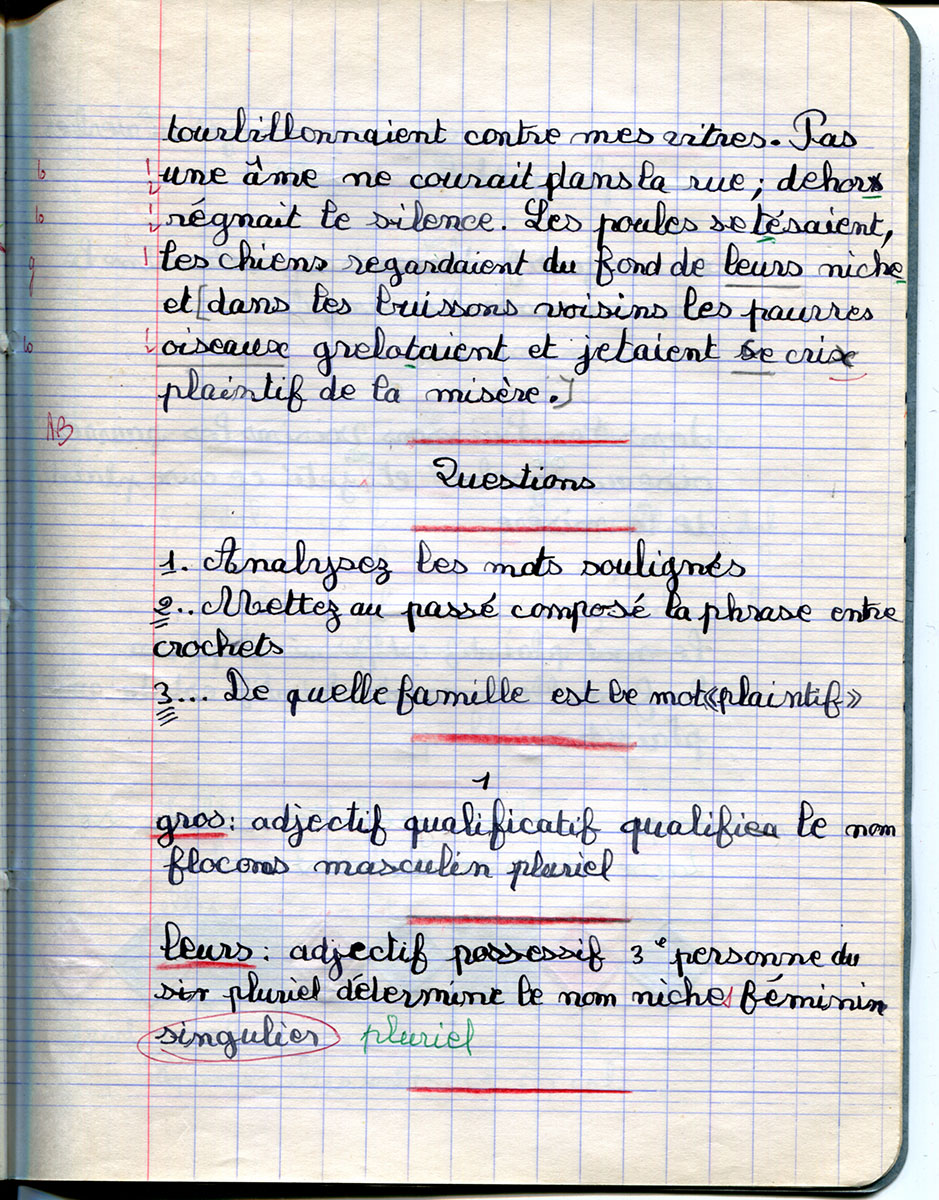 tourbillonnaient contre mes vitres. Pas
b une âme ne courait dans la rue ; dehors
b régnait le silence. Les poules se tésaient,
g les chiens regardaient du fond de leurs niche
et [dans les buissons voisins les pauvres
b oiseaux grelotaient et jetaient se crix
plaintif de la misère.]
AB
Questions
1. Analysez les mots soulignés
2.. Mettez au passé composé la phrase entre
crochets
3... De quelle famille est le mot «plaintif»
1
gros : adjectif qualificatif qualifiea le nom
flocons masculin pluriel
leurs : adjectif possessif 3e personne du
sir pluriel détermine le nom niches féminin
singulier pluriel